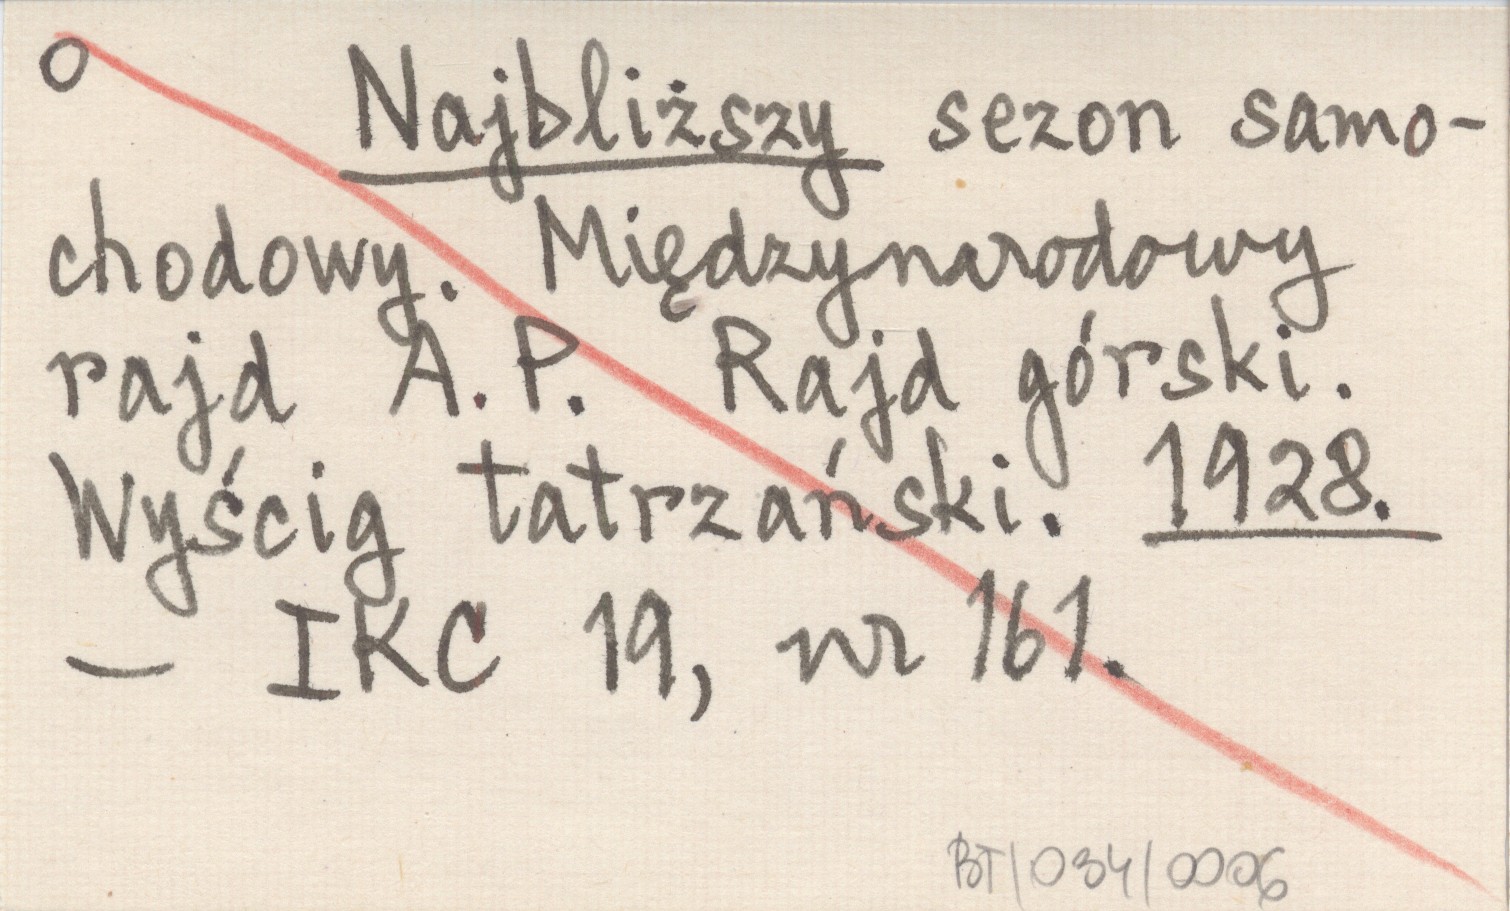 O
Najbliższy sezon samo-
chodowy. Międzynarodowy
rajd A.P. Rajd górski.
Wyścig tatrzański. 1928.
— IKC 19, nr 161.
BT/034/0006